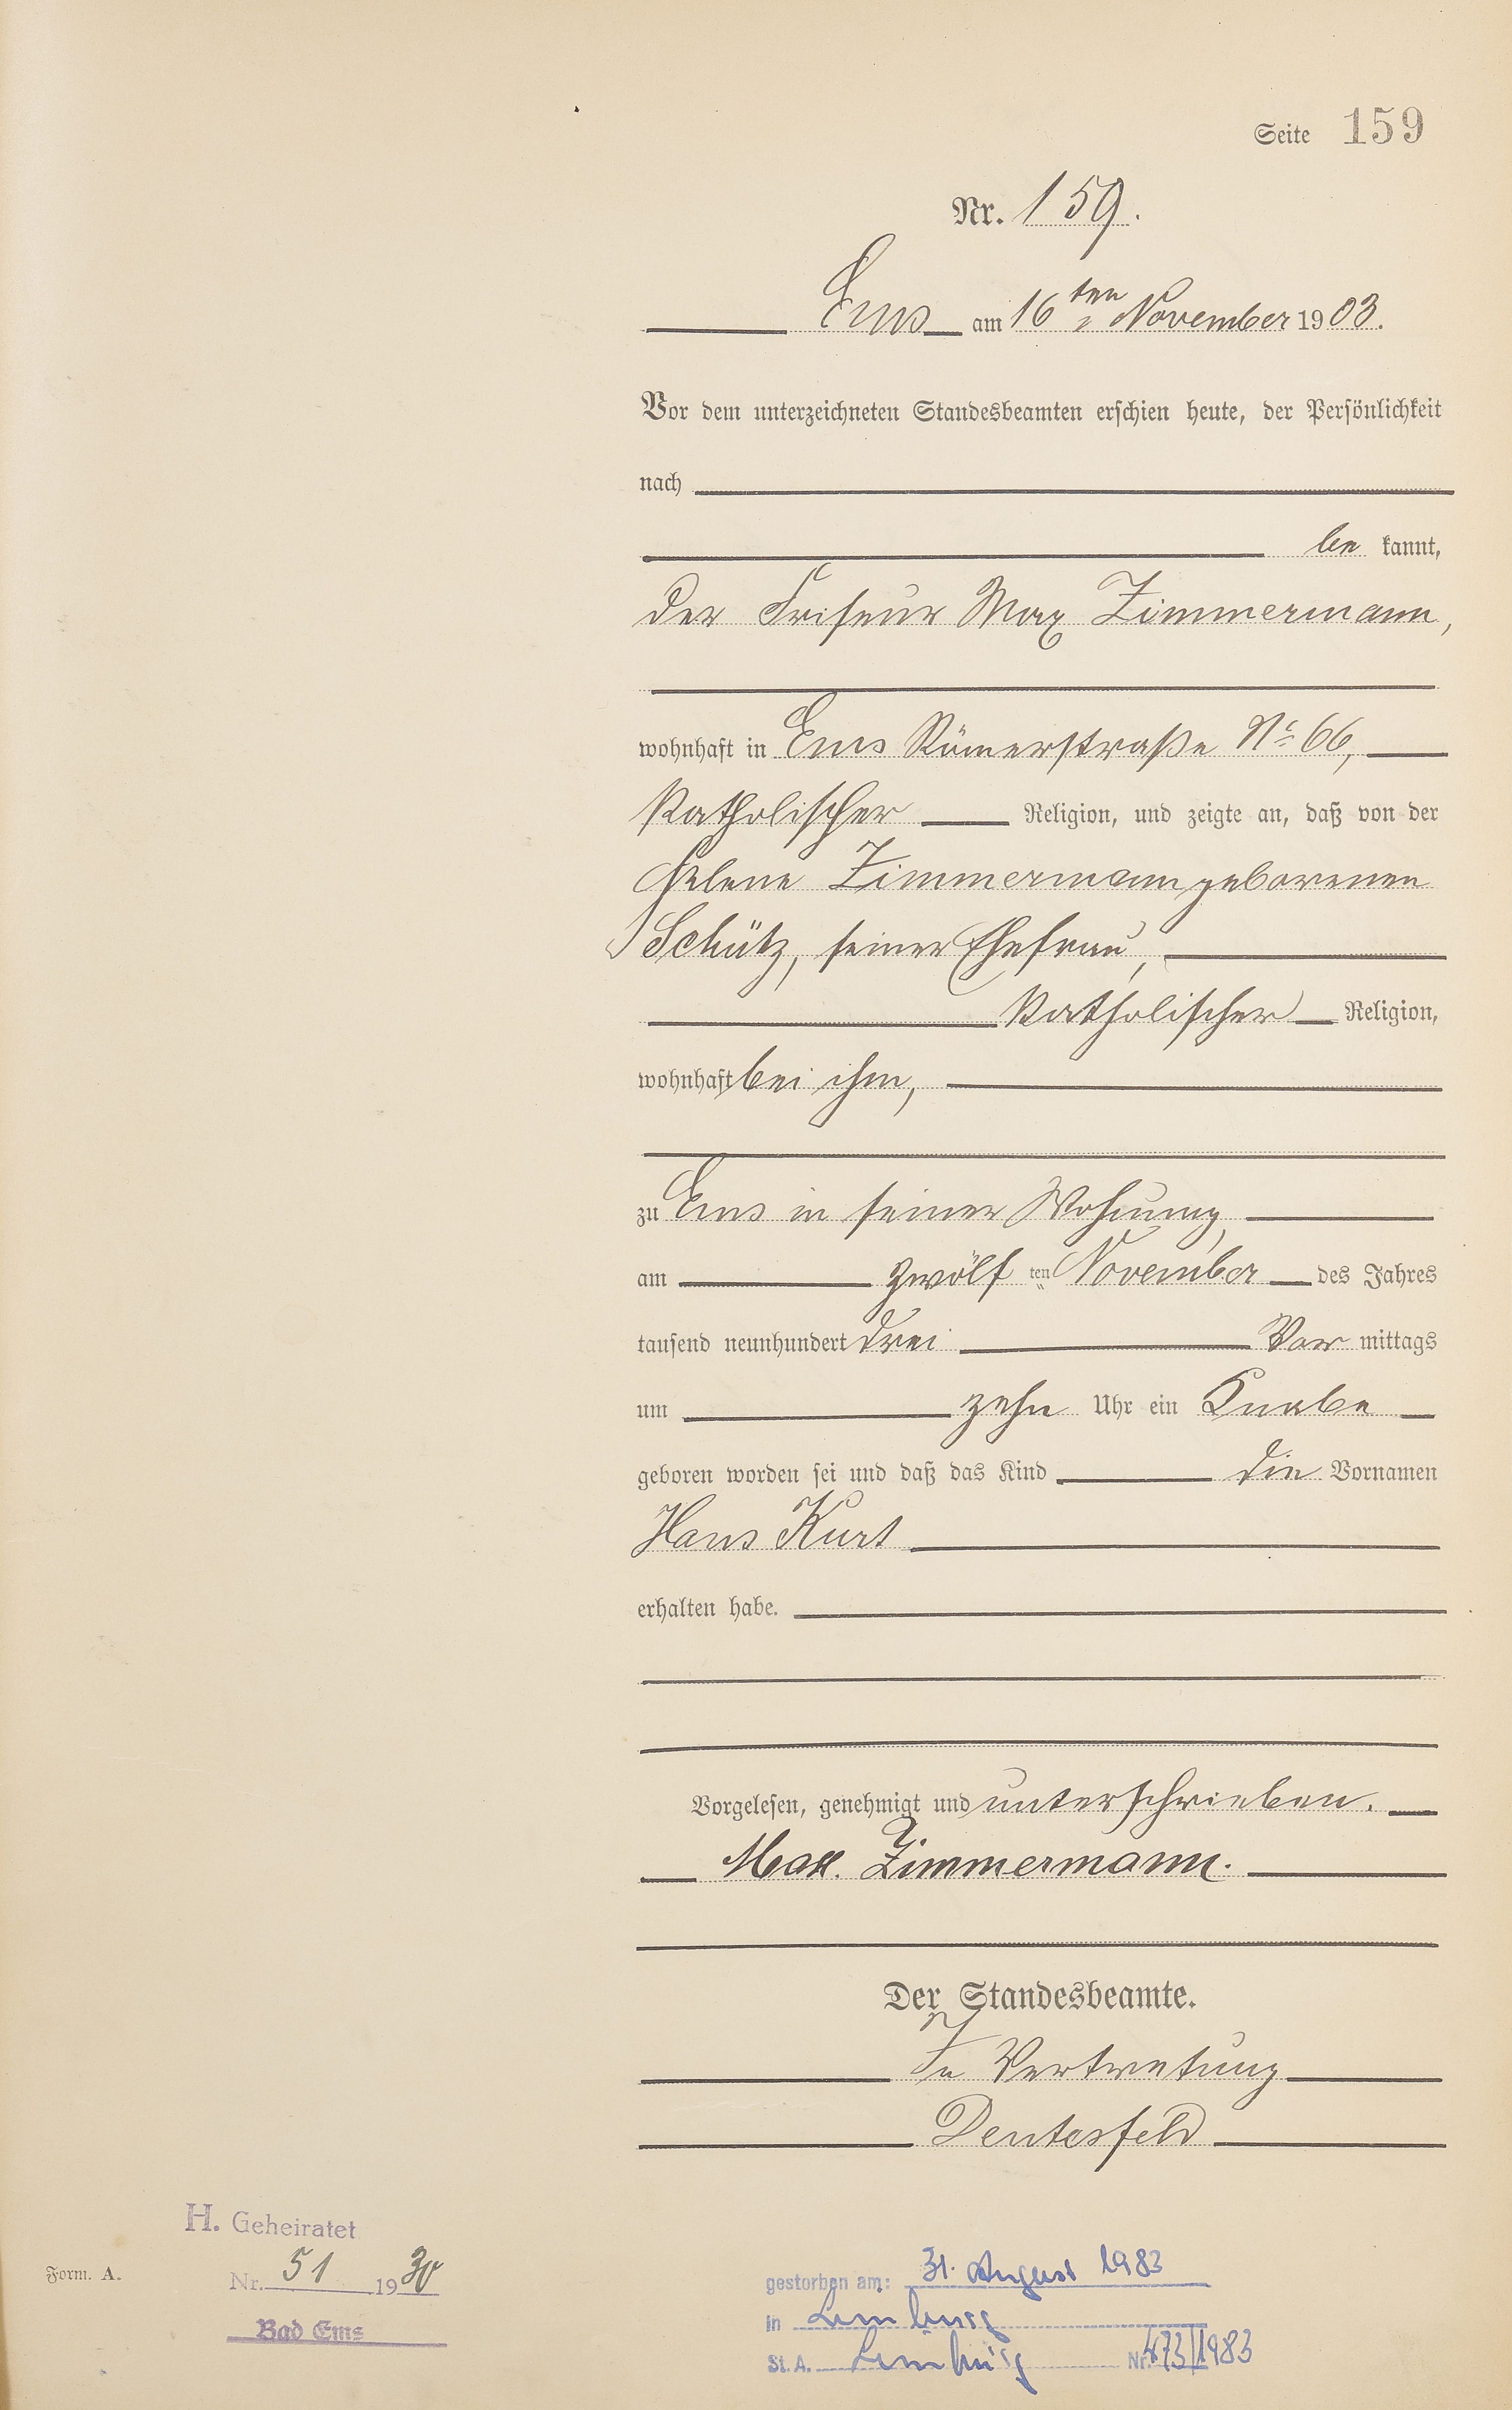 Seite 159
Nr. 159.
Ems am 16ten November 1903.
Vor dem unterzeichneten Standesbeamten erschien heute, der Persönlichkeit
nach
be kannt,
der Friseur Max Zimmermann,
wohnhaft in Ems Römerstraße No 66,
katholischer Religion, und zeigte an, daß von der
Helene Zimmermann geborenen
Schütz, seiner Ehefrau,
katholischer Religion,
wohnhaft bei ihm,
zu Ems in seiner Wohnung,
am zwölf ten November des Jahres
tausend neunhundert drei Vor mittags
um zehn Uhr ein Knabe
geboren worden sei und daß das Kind die Vornamen
Hans Kurt
erhalten habe.
Vorgelesen, genehmigt und unterschrieben.
Max. Zimmermann.
Der Standesbeamte.
In Vertretung
Deutesfeld
H. Geheiratet
Nr. 51 1930
Bad Ems
Form. A.
gestorben am: 31. August 1983
in Limburg
St. A. Limburg Nr. 473/1983